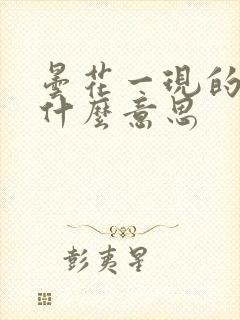 曇花一現的
什麼意思
彭夷星